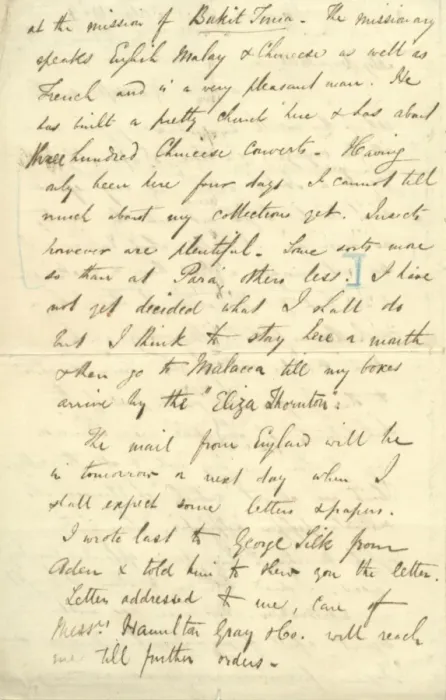 at the mission of Bukit Tima. The missionary
speaks English Malay & Chineese as well as
French and is a very pleasant man. He
has built a pretty church here & has about
three hundred Chineese converts. Having
only been here four days I cannot tell
much about my collections yet. Insects
however are plentiful. Some sorts more
so than at Para, others less. I have
not yet decided what I shall do
but I think to stay here a month
& then go to Malacca till my boxes
arrive by the "Eliza Thornton".
The mail from England will be
in tomorrow or next day when I
shall expect some letters & papers.
I wrote last to George Silk from
Aden & told him to shew you the letter.
Letters addressed to me, care of
Messrs. Hamilton Gray & Co. will reach
me till further orders.